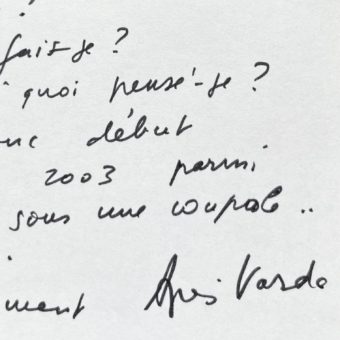 ?
fais-je ?
quoi pensé-je ?
début
2003 parmi
sous une coupole ..
.
Agnès Varda